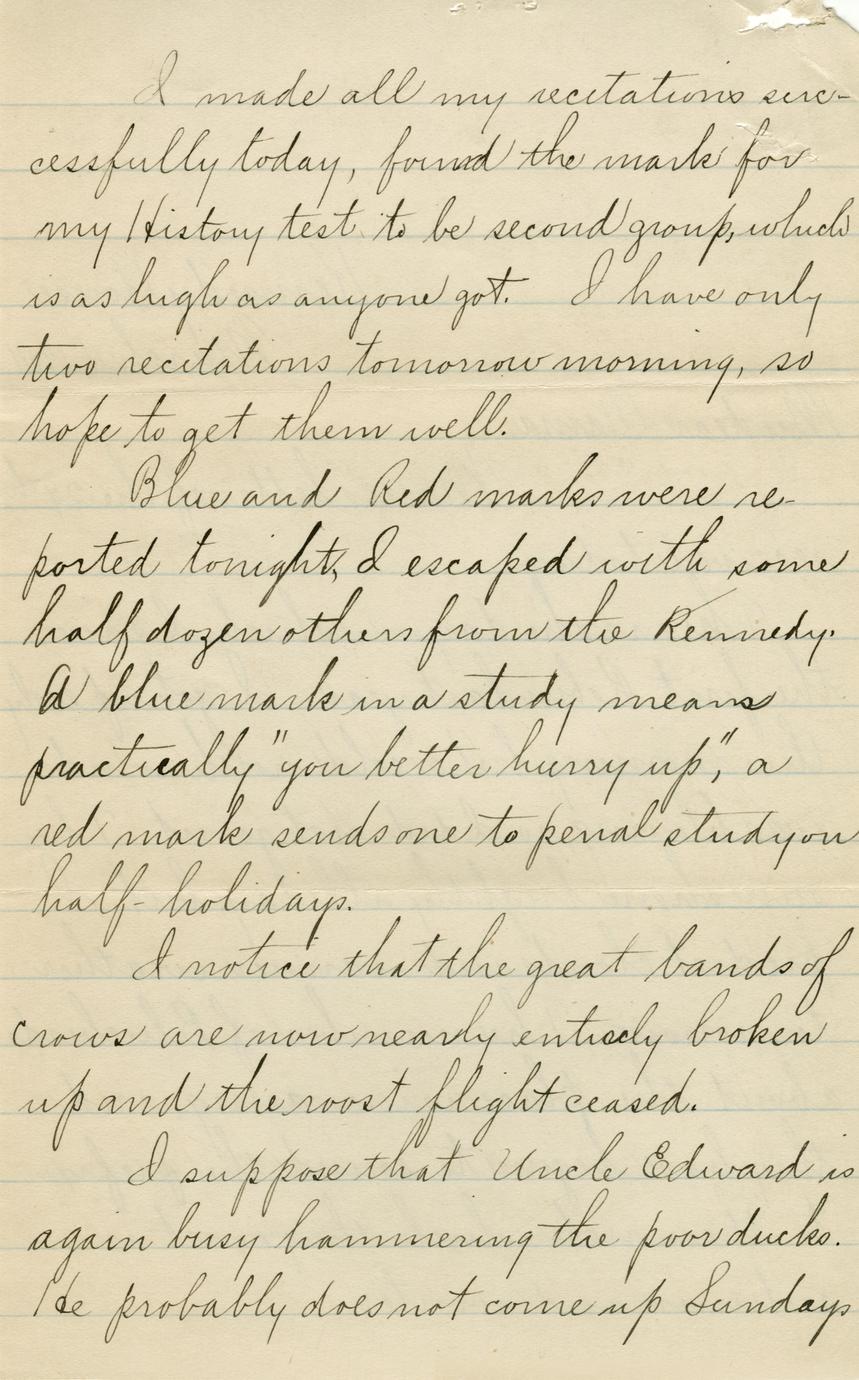 I made all my recitations suc-
cessfully today, found the mark for
my History test to be second group, which
is as high as anyone got. I have only
two recitations tomorrow morning, so
hope to get them well.
Blue and Red marks were re-
ported tonight, I escaped with some
half dozen others from the Kennedy.
A blue mark in a study means
practically "you better hurry up", a
red mark sends one to penal study on
half-holidays.
I notice that the great bands of
crows are now nearly entirely broken
up and the roost flight ceased.
I suppose that Uncle Edward is
again busy hammering the poor ducks.
He probably does not come up Sundays